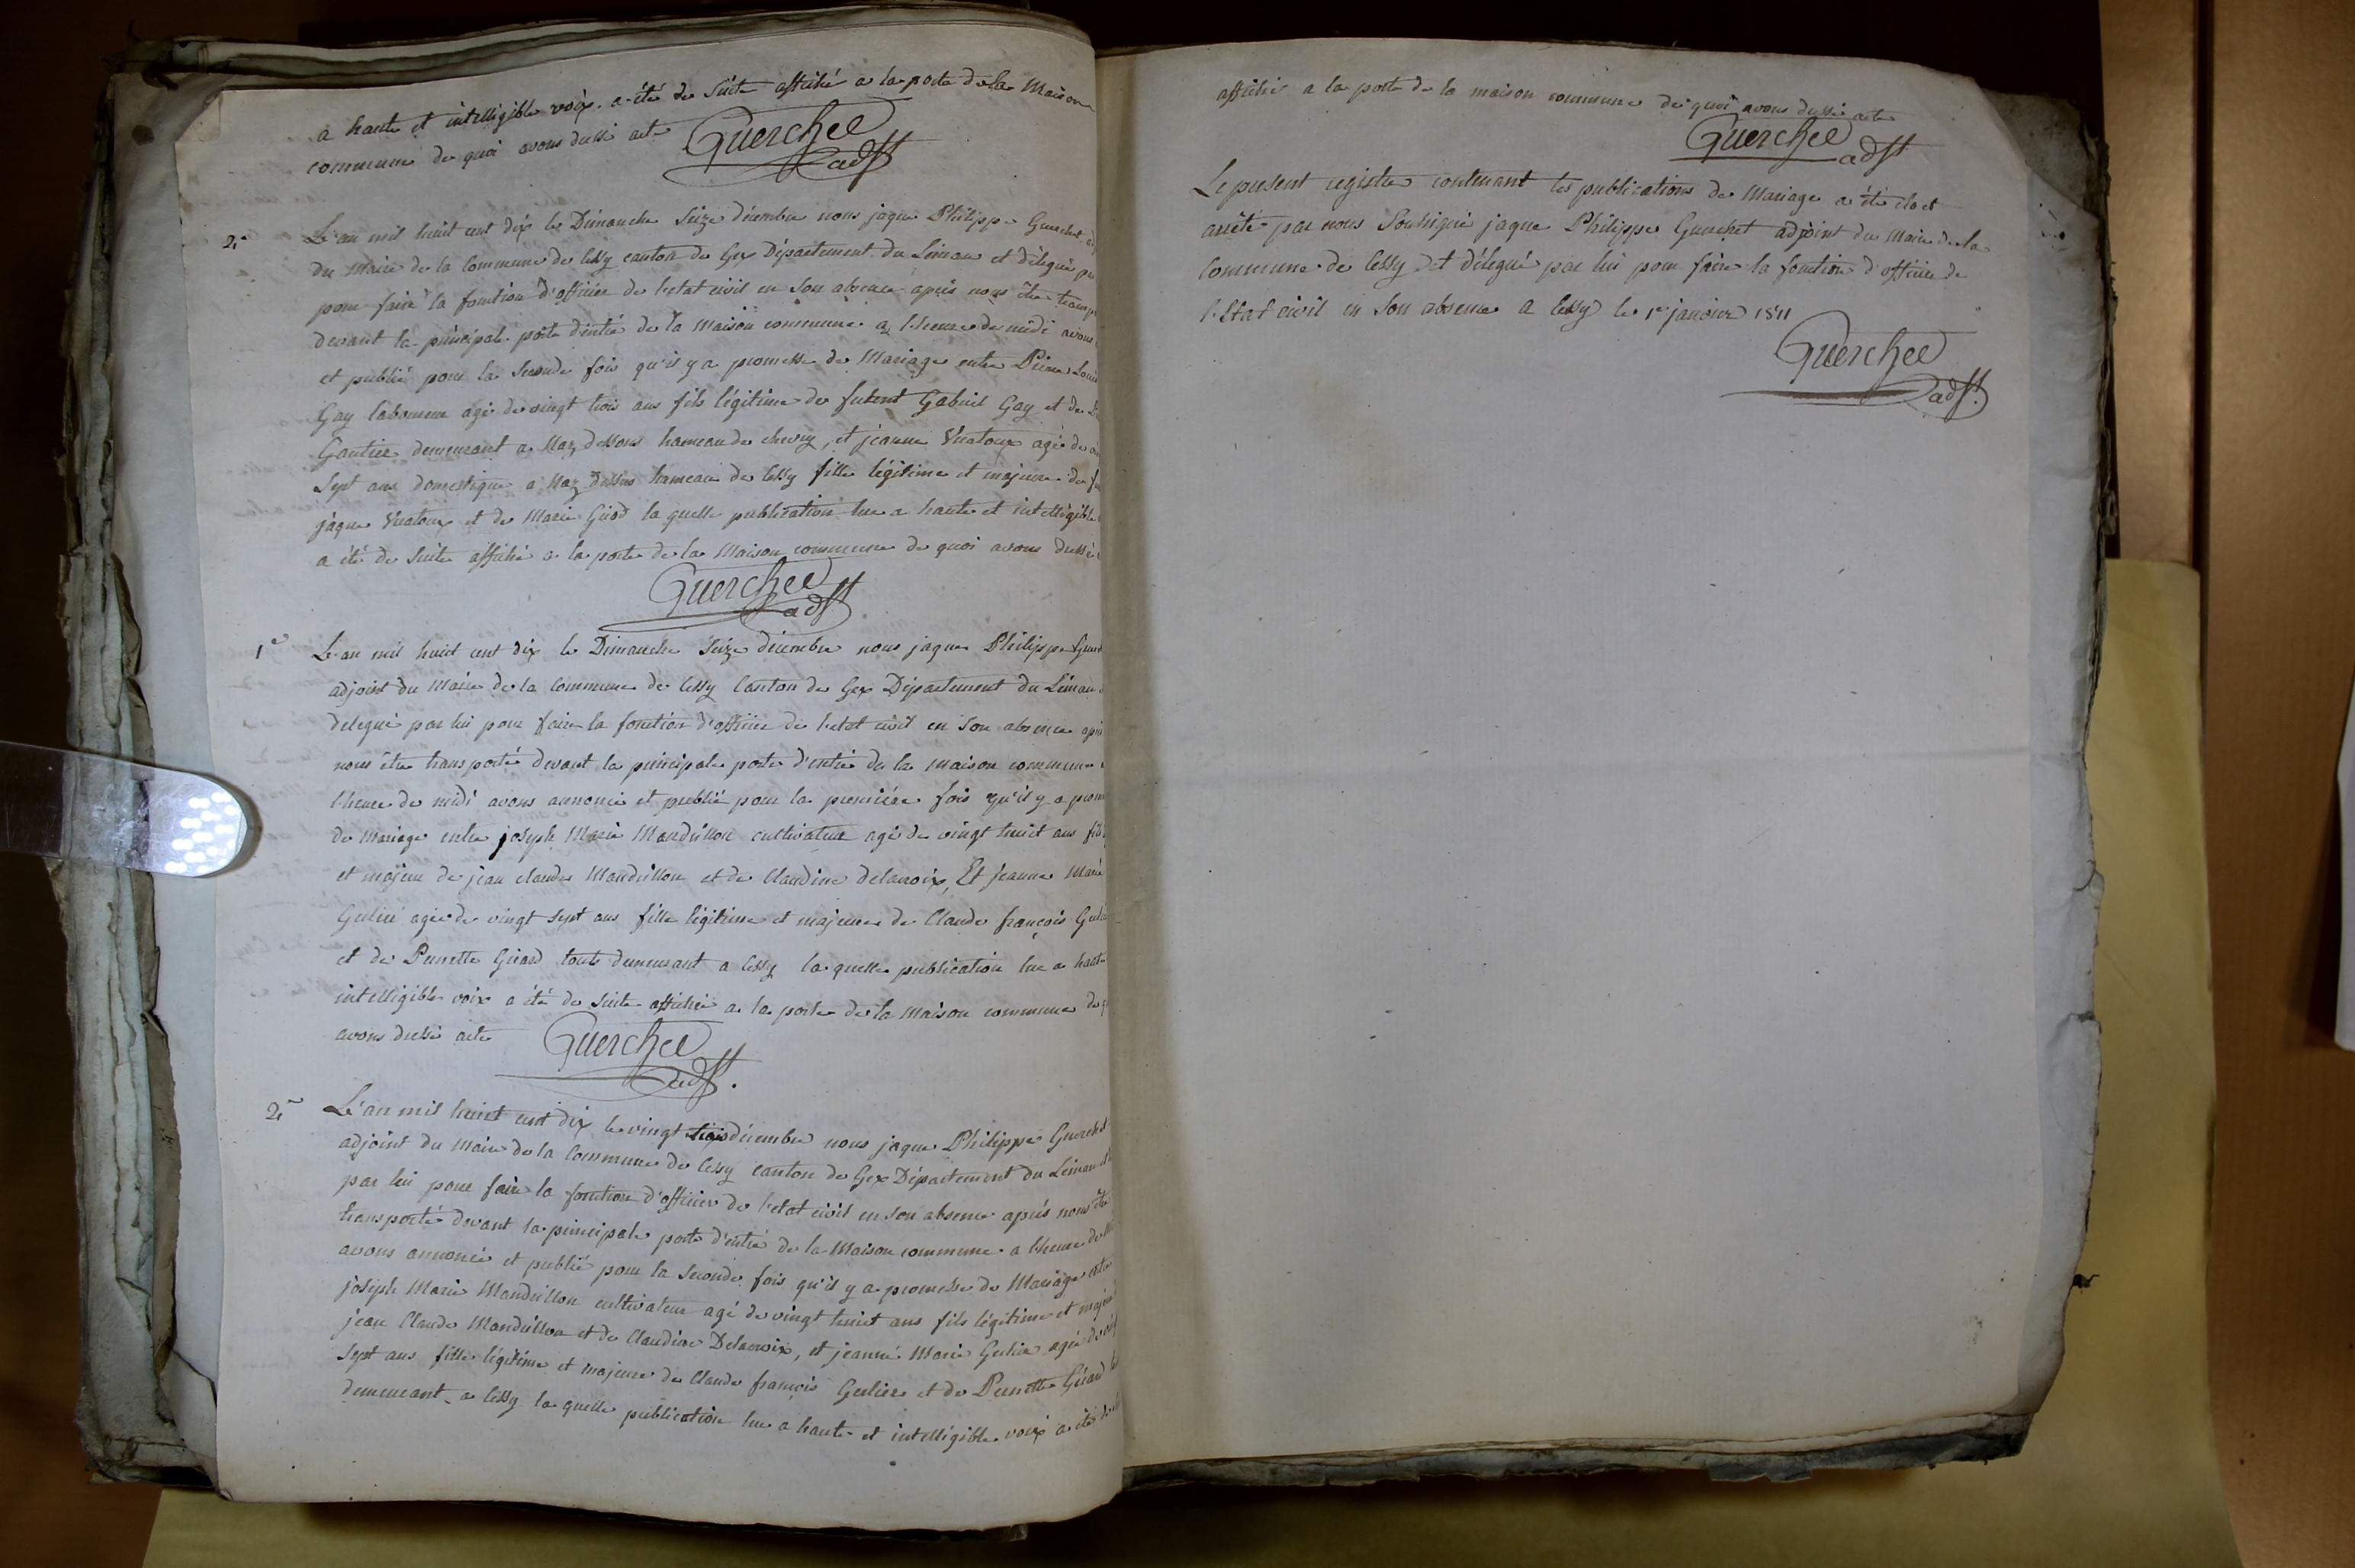 a haute et intelligible voix a été de suite affiché a la porte de la Maison
commune de quoi avons dressé acte
Guerchet
adjt
2e
L'an mil huit cent dix le Dimanche Seize décembre nous jaque Philippe Guerchet adj
du Maire de la Commune de Cessy canton de Gex Département du Léman et délégué pa
pour faire la fonction d'officier de l'etat civil en son absence après nous être transp
devant la principale porte d'entrée de la Maison commune a l'heure de midi avons
et publié pour la seconde fois qu'il y a promesse de Mariage entre Pierre Louis
Gay laboureur agé de vingt trois ans fils légitime de futent Gabriel Gay et de
Gautier demeurant a Naz dessous hameau de chevry, et jeanne Vuatoux agée de
Sept ans domestique a Naz dessus hameau de Cessy fille légitime et majeure de
jaque Vuatoux et de Marie Girod la quelle publication lue a haute et intelligible
a été de suite affiché a la porte de la Maison commune de quoi avons dressé
Guerchet
adjt
1e
L'an mil huit cent dix le Dimanche Seize décembre nous jaque Philippe Guerch
adjoint du Maire de la Commune de Cessy Canton de Gex Département du Léman
delegué par lui pour faire la fonction d'officier de l'etat civil en son absence après
nous être transporté devant la principale porte d'entrée de la maison commune
l'heure de midi avons annoncé et publié pour la première fois qu'il y a prom
de Mariage entre joseph Marie Mandrillon cultivateur agé de vingt huit ans fils
et majeur de jean claude Mandrillon et de Claudine delacroix, Et jeanne Marie
agée de vingt sept ans fille légitime et majeure de Claude françois
et de Pernette Girard touts demeurant a Cessy la quelle publication lue a haute
intelligible voix a été de suite affiché a la porte de la Maison commune de
avons dressé acte
Guerchet
adjt.
2e
L'an mil huit cent dix le vingt trois décembre nous jaque Philippe Guerchet
adjoint du Maire de la Commune de Cessy canton de Gex Département du Léman et
par lui pour faire la fonction d'officier de l'etat civil en son absence après nous être
transporté devant la principale porte d'entrée de la Maison commune a l'heure de
avons annoncé et publié pour la seconde fois qu'il y a promesse de Mariage entre
joseph Marie Mandrillon cultivateur agé de vingt huit ans fils légitime et majeur
jean Claude Mandrillon et de Claudine Delacroix, et jeanne Marie agée de
Sept ans fille légitime et majeure de Claude françois et de Pernette Girard
demeurant a Cessy la quelle publication lue a haute et intelligible voix a été de
affiché a la porte de la maison commune de quoi avons dressé acte
Guerchet
adjt
Le présent registre contenant les publications de Mariage a été clos et
arrêté par nous Soussigné jaque Philippe Guerchet adjoint du Maire de la
Commune de Cessy et délégué par lui pour faire la fonction d'officier de
l'Etat civil en Son absence a Cessy le 1er janvier 1811
Guerchet
adjt.